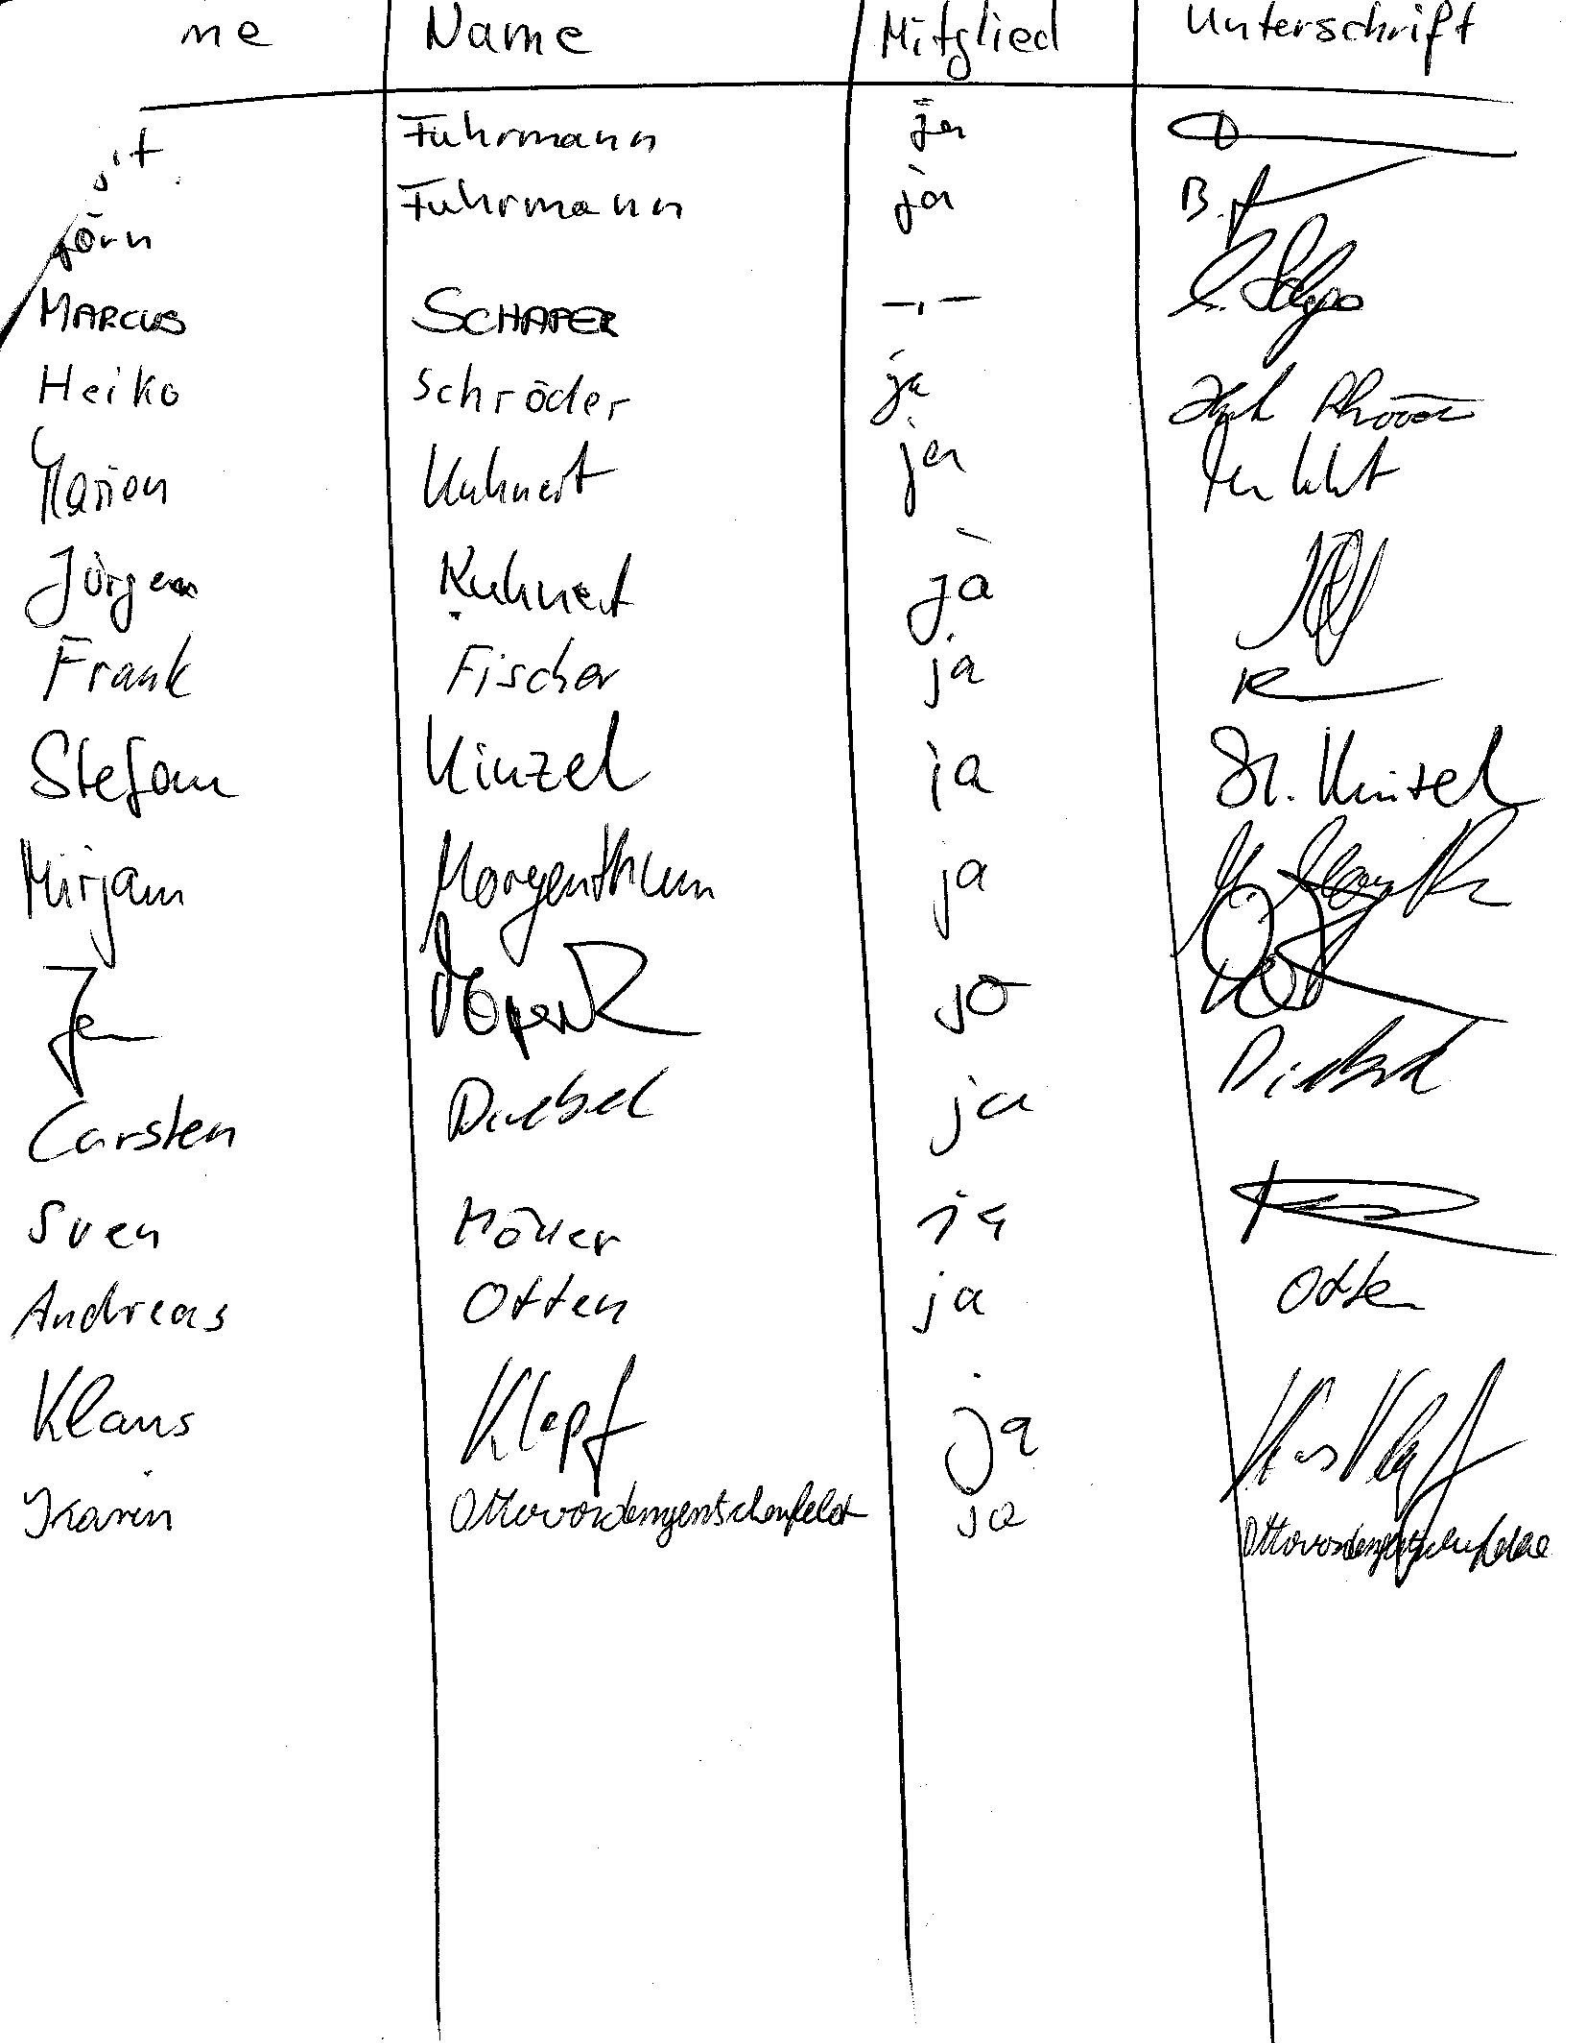 me Name Mitglied Unterschrift
it Fuhrmann ja
jörn Fuhrmann ja B.
MARCUS SCHAPER -"-
Heiko Schröder ja
Marion Kuhnert ja
Jürgen Kuhnert ja
Frank Fischer ja
Stefan Kinzel ja St. Kinzel
Mirjam Morgenthum ja
ja
Carsten Diebel ja Diebel
Sven Möller ja
Andreas Otten ja Otten
Klaus Klapf ja
Karin Ottovordemgentschenfelde ja Ottovordemgentschenfelde